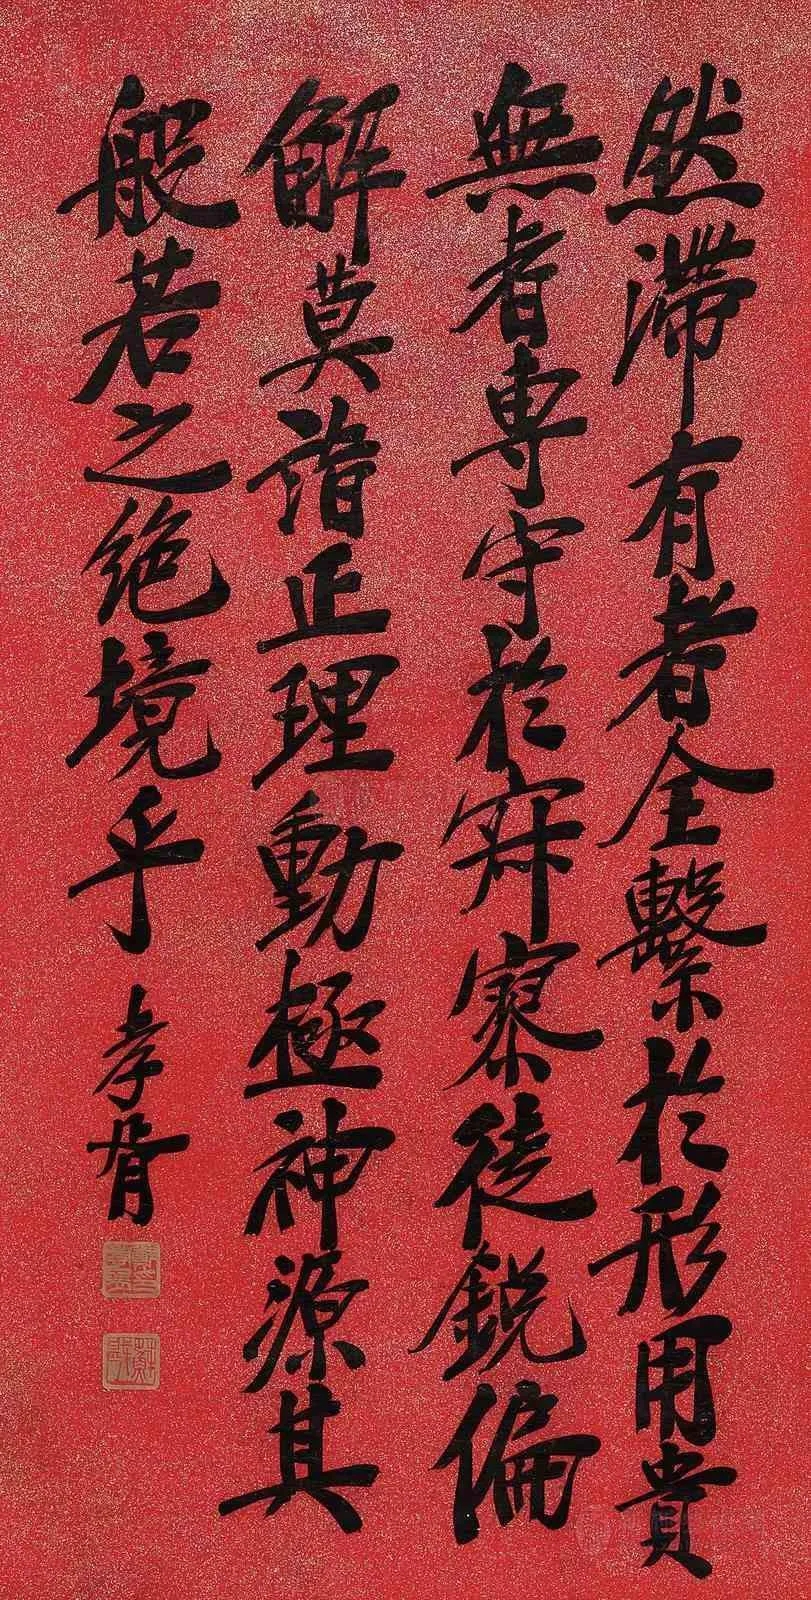 然滞有者全繫於形用貴
無者専守於寂寥徒鋭偏
解莫詣正理動極神源其
般若之绝境乎
孝胥